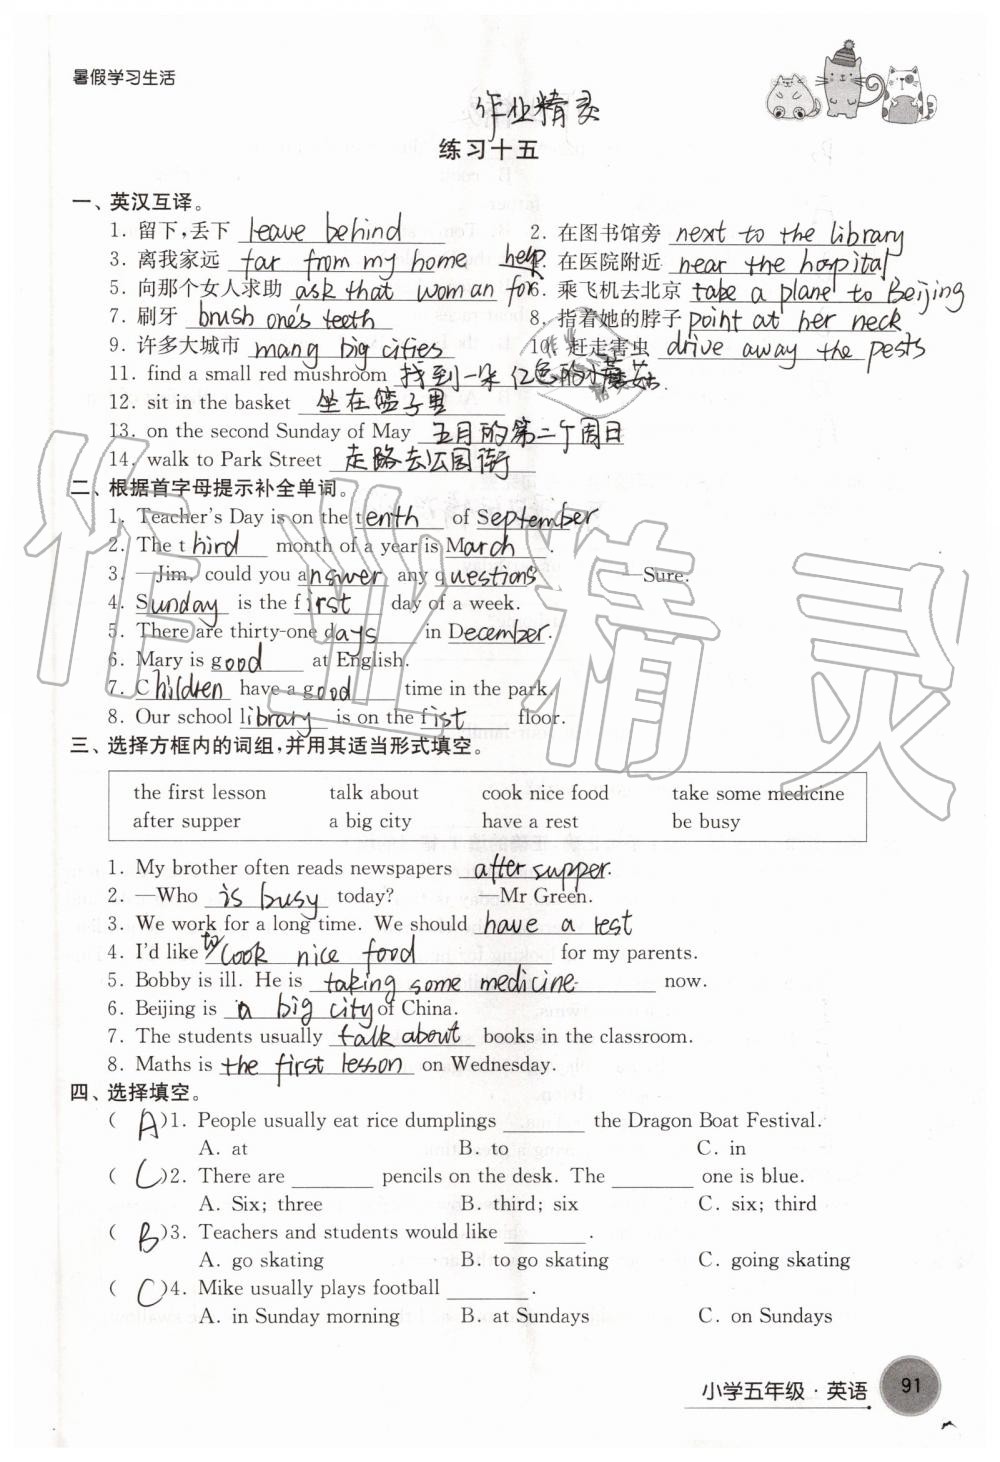 暑假学习生活
作业精灵
练习十五
一、英汉互译。
1. 留下,丢下 leave behind 2. 在图书馆旁 next to the library
3. 离我家远 far from my home 4. 在医院附近 near the hospital
5. 向那个女人求助 ask that woman for help 6. 乘飞机去北京 take a plane to Beijing
7. 刷牙 brush one's teeth 8. 指着她的脖子 point at her neck
9. 许多大城市 mang big cities 10. 赶走害虫 drive away the pests
11. find a small red mushroom 找到一朵红色的小蘑菇
12. sit in the basket 坐在篮子里
13. on the second Sunday of May 五月的第二个周日
14. walk to Park Street 走路去公园街
二、根据首字母提示补全单词。
1. Teacher's Day is on the tenth of September
2. The third month of a year is March.
3. —Jim, could you answer any questions —Sure.
4. Sunday is the first day of a week.
5. There are thirty-one days in December.
6. Mary is good at English.
7. Children have a good time in the park.
8. Our school library is on the fist floor.
三、选择方框内的词组,并用其适当形式填空。
the first lesson talk about cook nice food take some medicine
after supper a big city have a rest be busy
1. My brother often reads newspapers after supper.
2. —Who is busy today? —Mr Green.
3. We work for a long time. We should have a rest
4. I'd like to cook nice food for my parents.
5. Bobby is ill. He is taking some medicine now.
6. Beijing is a big city of China.
7. The students usually talk about books in the classroom.
8. Maths is the first lesson on Wednesday.
四、选择填空。
( A )1. People usually eat rice dumplings ______ the Dragon Boat Festival.
A. at B. to C. in
( C )2. There are ______ pencils on the desk. The ______ one is blue.
A. Six; three B. third; six C. six; third
( B )3. Teachers and students would like ______ .
A. go skating B. to go skating C. going skating
( C )4. Mike usually plays football ______ .
A. in Sunday morning B. at Sundays C. on Sundays
小学五年级·英语 91
作业精灵